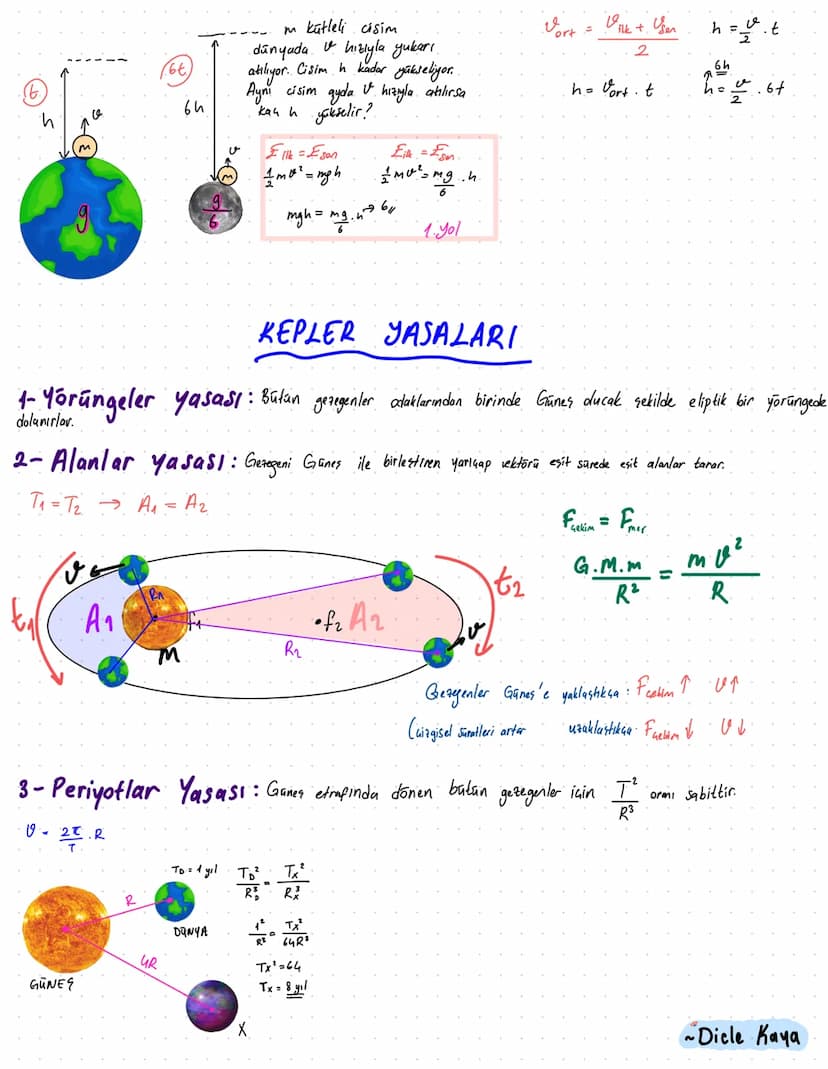 m kütleli cisim
dünyada v hızıyla yukarı
atılıyor. Cisim h kadar yükseliyor.
Aynı cisim ayda v hızıyla atılırsa
kaç h yükselir?
t
h
v
m
g
6t
6h
v
m
g/6
E ilk = E son
1/2 mv² = mgh
E ilk = E son
1/2 mv² = mg/6 . h
mgh = mg/6 . h → 6h
1. yol
v ort = (v ilk + v son)/2
h = v/2 . t
h = v ort . t
6h
h = v/2 . 6t
KEPLER YASALARI
1- Yörüngeler yasası : Bütün gezegenler odaklarından birinde Güneş olucak şekilde eliptik bir yörüngede
dolanırlar.
2- Alanlar yasası : Gezegeni Güneş ile birleştiren yarıçap vektörü eşit sürede eşit alanlar tarar.
T₁ = T₂ → A₁ = A₂
F çekim = F mer
G.M.m/R² = mv²/R
t₁
v
R₁
A₁
f₁
M
R₂
f₂
A₂
v
t₂
Gezegenler Güneş'e yaklaştıkça : F çekim ↑ v↑
(çizgisel süratleri artar
uzaklaştıkça F çekim ↓ v↓
3- Periyotlar Yasası : Güneş etrafında dönen bütün gezegenler için T²/R³ oranı sabittir.
v = 2π/T . R
T_D = 1 yıl
R
DÜNYA
4R
GÜNEŞ
X
T_D²/R_D³ = T_X²/R_X³
1²/R³ = T_X²/64R³
T_X² = 64
T_X = 8 yıl
~Dicle Kaya